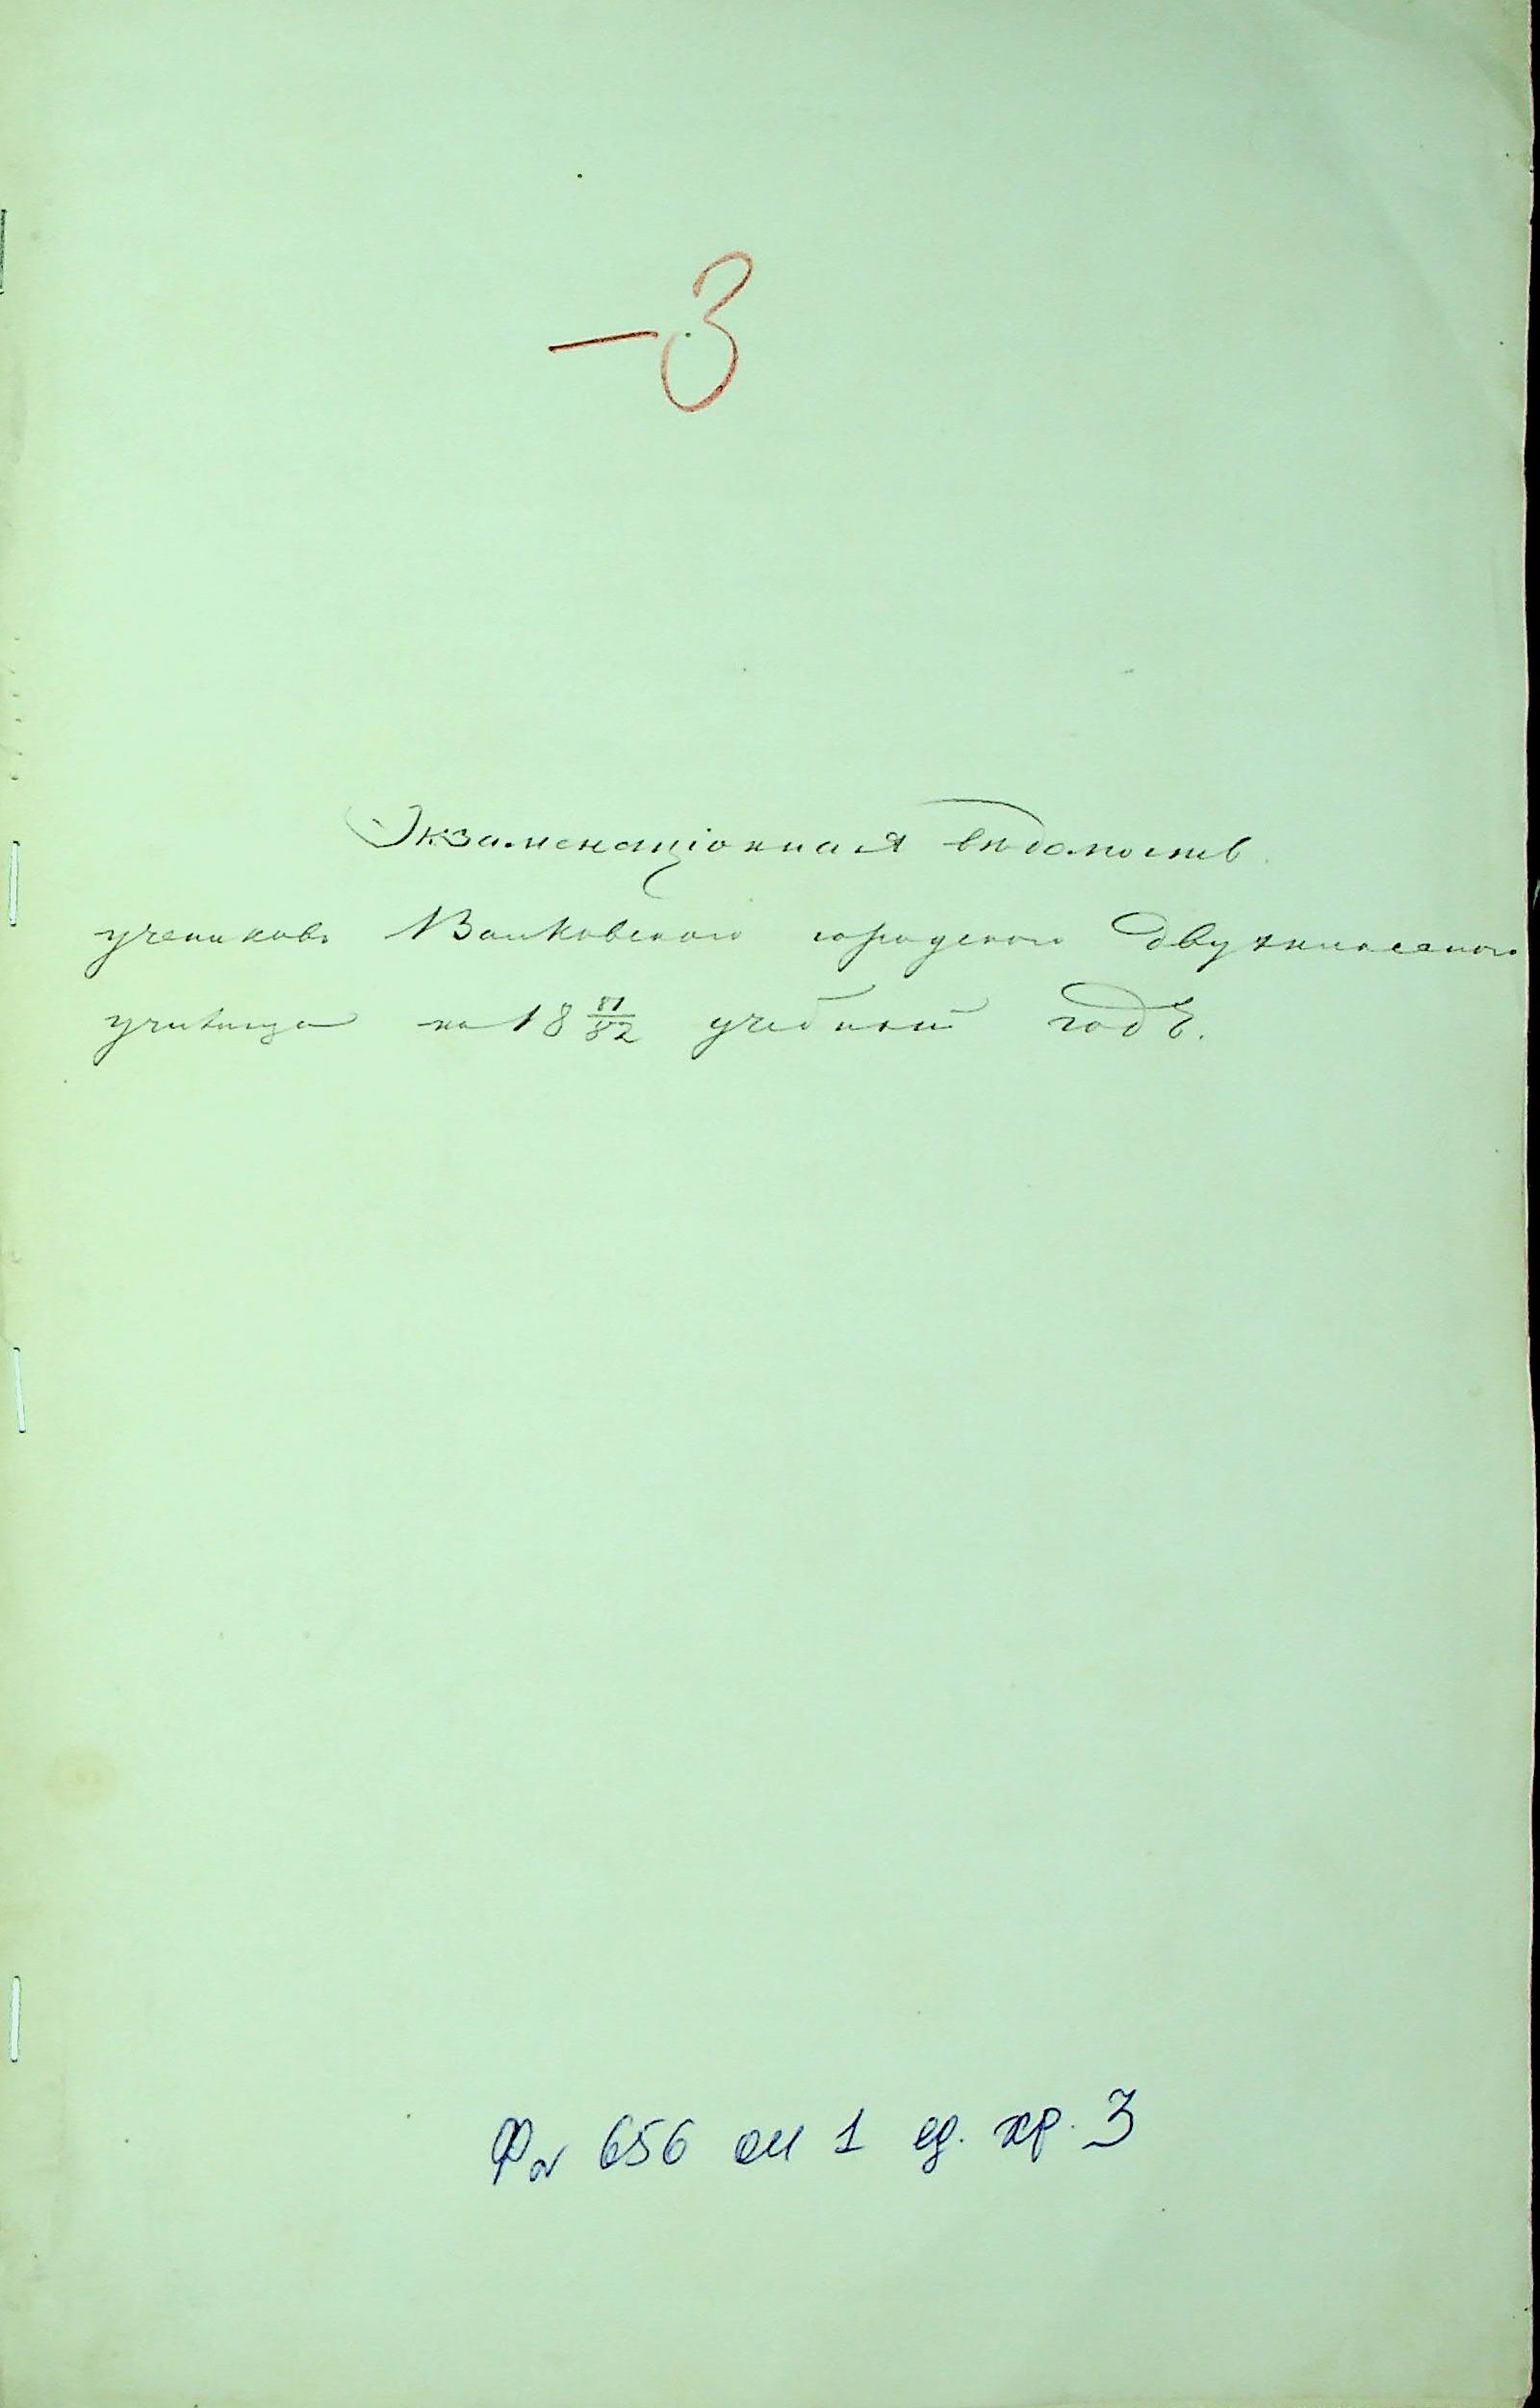 —3
Экзаменаціонная вѣдомость
учениковъ Валковскаго городскаго двухкласснаго
училища на 18 81/82 учебный годъ.
Ф № 656 оп 1 ед. хр. 3